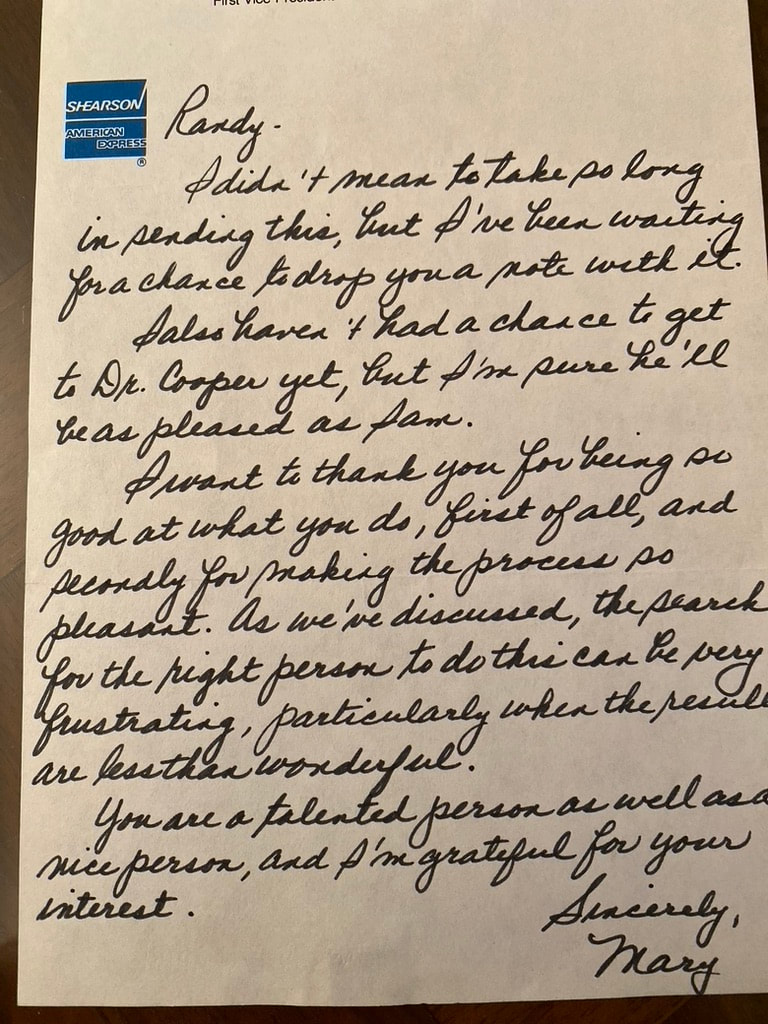 First Vice President
SHEARSON
AMERICAN
EXPRESS
®
Randy.
I didn't mean to take so long
in sending this, but I've been waiting
for a chance to drop you a note with it.
I also haven't had a chance to get
to Dr. Cooper yet, but I'm sure he'll
be as pleased as I am.
I want to thank you for being so
good at what you do, first of all, and
secondly for making the process so
pleasant. As we've discussed, the search
for the right person to do this can be very
frustrating, particularly when the result
are less than wonderful.
You are a talented person as well as a
nice person, and I'm grateful for your
interest.
Sincerely,
Mary